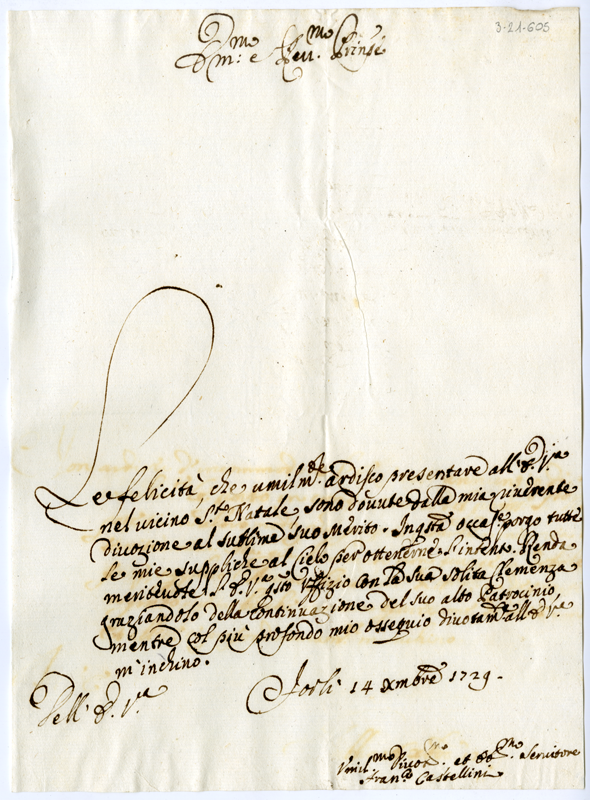 3-21-605
Em:mo e Rev:mo Prinpe
Le felicità, che umilm.te ardisco presentare all' E. V.ra
nel vicino S.to Natale sono dovute dalla mia riverente
divozione al sublime suo Merito. In qsta occas.e porgo tutte
le mie suppliche al Cielo per ottenerne l'intento. Renda
meritevole l' E. V.ra qsto Uffizio con la sua solita Clemenza
graziandolo della continuazione del suo alto Patrocinio,
mentre col più profondo mio ossequio divotam.te all' E. V.ra
m'inchino.
Dell' E. V.ra
Forlì 14 Xmbre 1729.
Umil.mo Divot.mo et Ob.mo Servitore
Fran.co Castellini